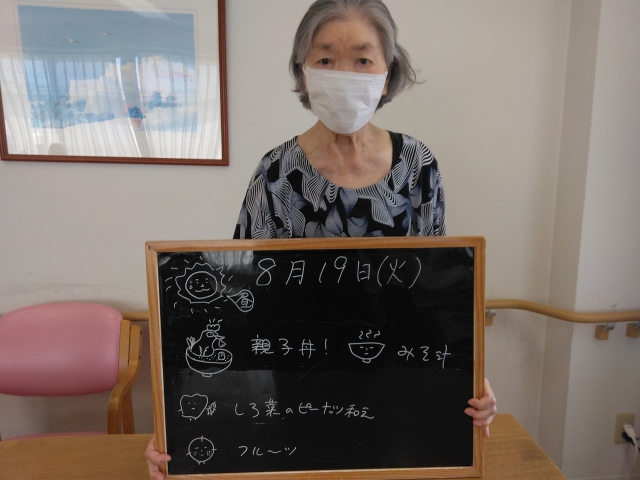 8月19日(火)
昼
親子丼! みそ汁
しろ菜のピーナッツ和え
フルーツ